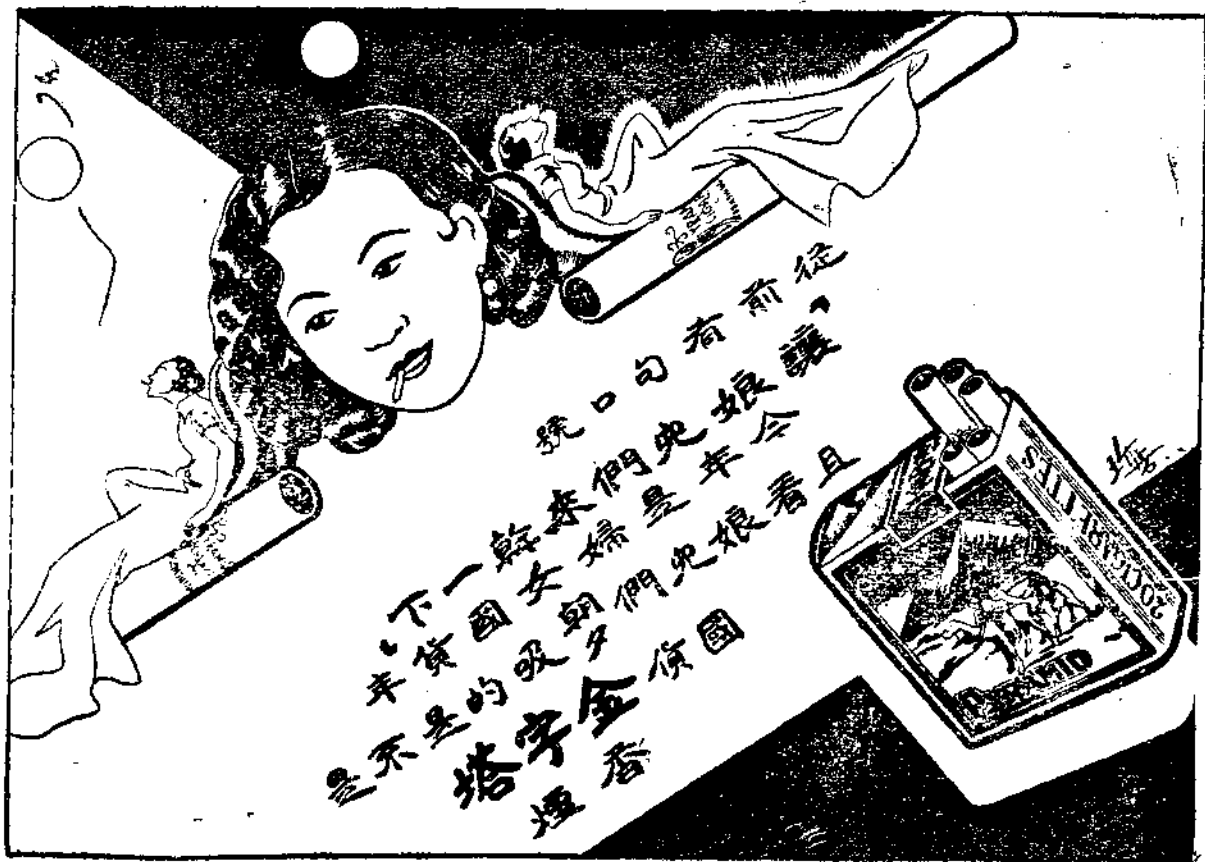 從前有句口號
「讓娘兒們來幹一下」
今年是婦女國貨年
且看娘兒們朝夕吸的是不是
國貨金字塔
香煙
20 CIGARETTES
PYRAMID